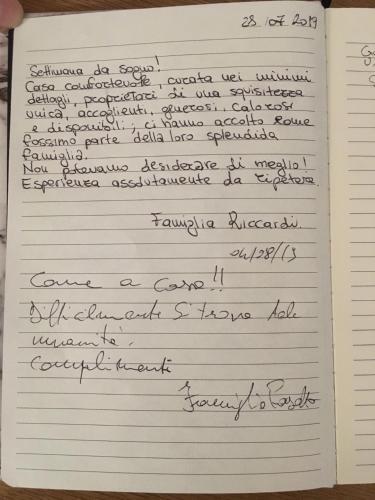 28 07 2019
Settimana da sogno!
Casa confortevole, curata nei minimi
dettagli, proprietari di una squisitezza
unica, accoglienti, generosi, calorosi
e disponibili; ci hanno accolto come
fossimo parte della loro splendida
famiglia.
Non potevamo desiderare di meglio!
Esperienza assolutamente da ripetere.
Famiglia Riccardi.
04/28/13
Come a casa!!
Difficilmente si trova tale
umanità.
Complimenti
Famiglia